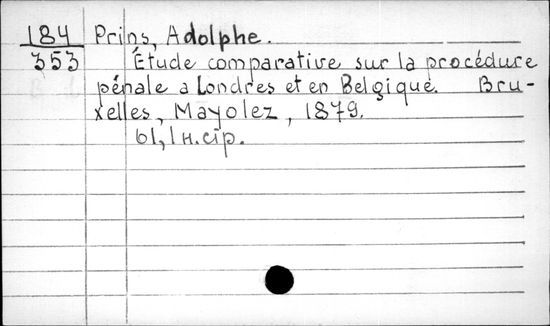 184 Prins, Adolphe.
353 Étude comparative sur la procédure
pénale a Londres et en Belgique. Bru-
xelles, Mayolez, 1879.
61, 1 н. стр.